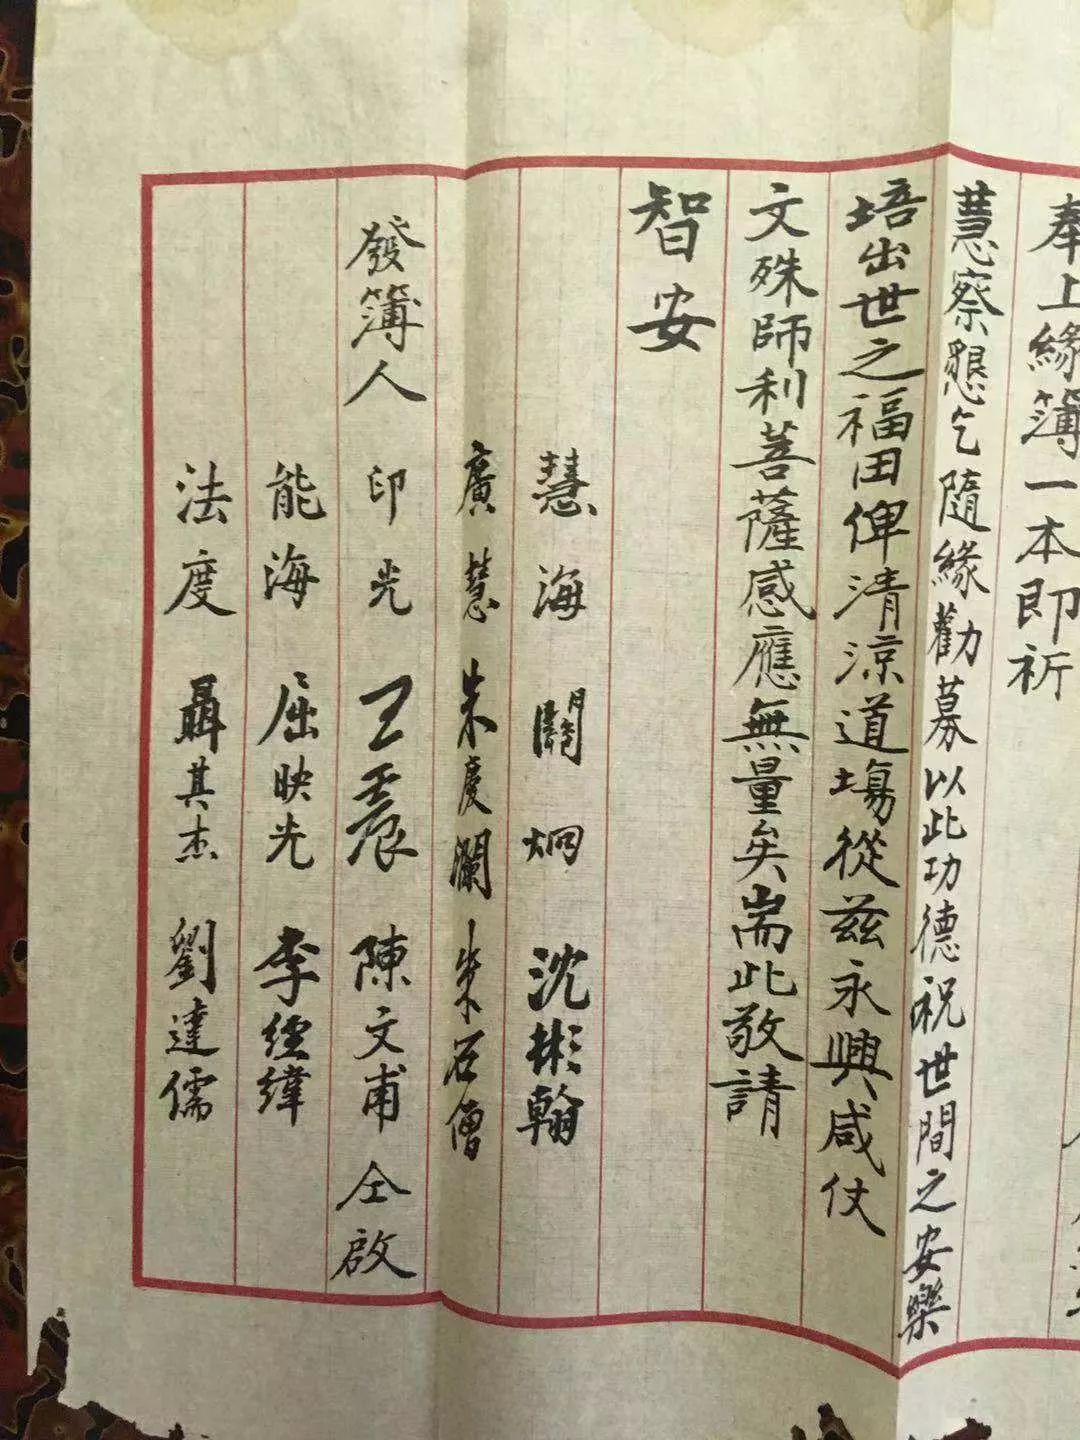 奉上緣簿一本即祈
慧察懇乞隨緣勸募以此功德祝世間之安樂
培出世之福田俾清涼道場從茲永興咸仗
文殊師利菩薩感應無量矣耑此敬請
智安
慧海 關炯 沈彬翰
廣慧 朱慶瀾 朱石僧
發簿人 印光 王震 陳文甫 仝啟
能海 屈映光 李經緯
法度 聶其杰 劉達儒